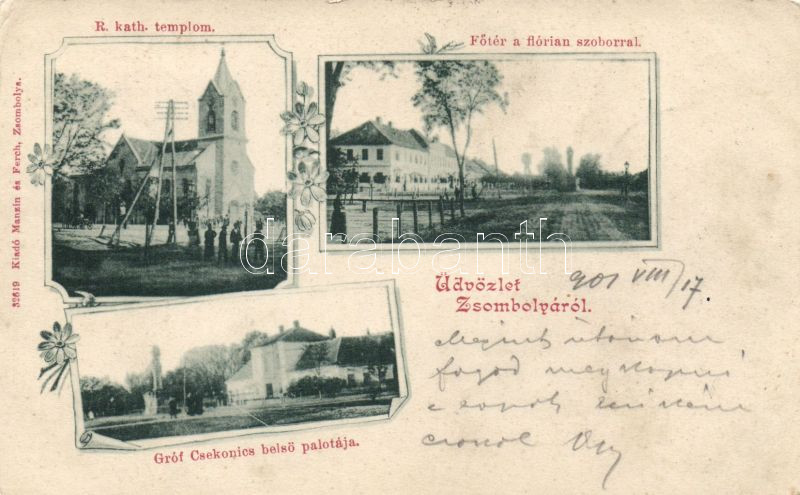 R. kath. templom.
Főtér a flórian szoborral.
32619 Kiadó Manzin és Ferch, Zsombolya.
darabanth
Üdvözlet
Zsombolyáról.
901 VIII/17
fogod megkapni
csokol
Gróf Csekonics belsö palotája.